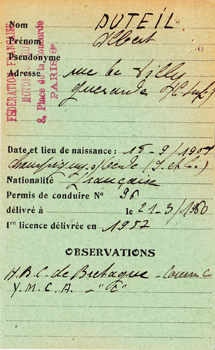 Nom DUTEIL
Prénom Albert
Pseudonyme
Adresse rue de Lilly
Guérande
FÉDÉRATION FRANÇAISE
8, Place de la Concorde
PARIS 8e
Date et lieu de naissance : 15-9-190
Nationalité Française
Permis de conduire N° 26
délivré à le 21-3-1950
1re licence délivrée en 1957
OBSERVATIONS
H.B.C. de Bretagne - Course C
Y.M.C.A. - "C"